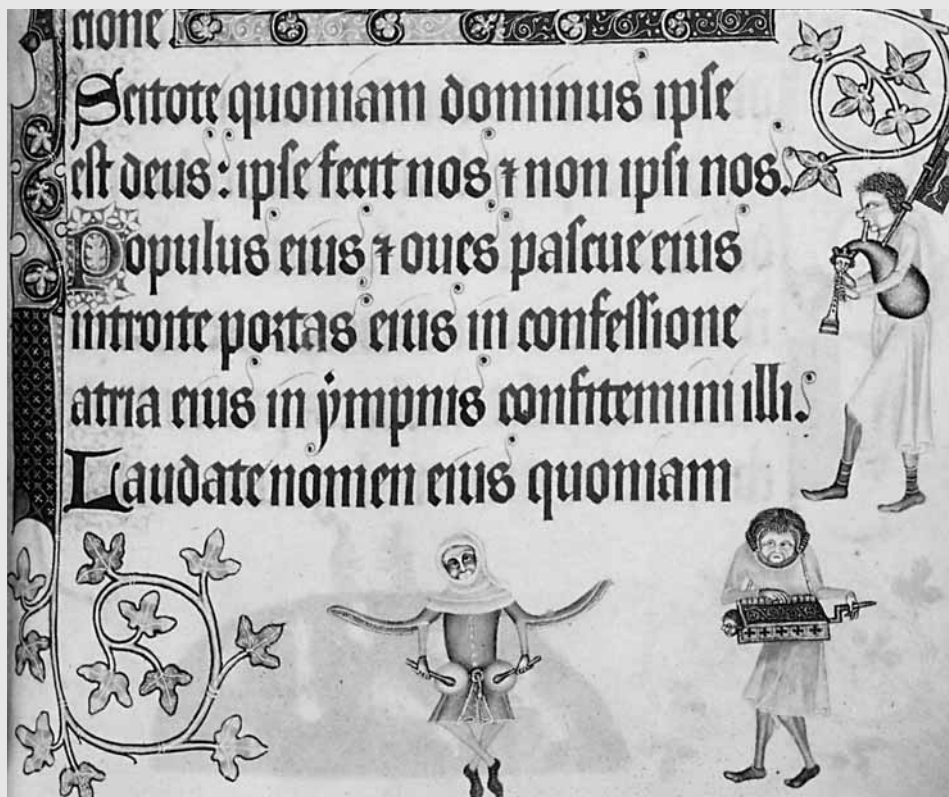 cione
Scitote quoniam dominus ipse
est deus: ipse fecit nos ⁊ non ipsi nos.
Populus eius ⁊ oves pascue eius
introite portas eius in confessione
atria eius in ympnis confitemini illi.
Laudate nomen eius quoniam